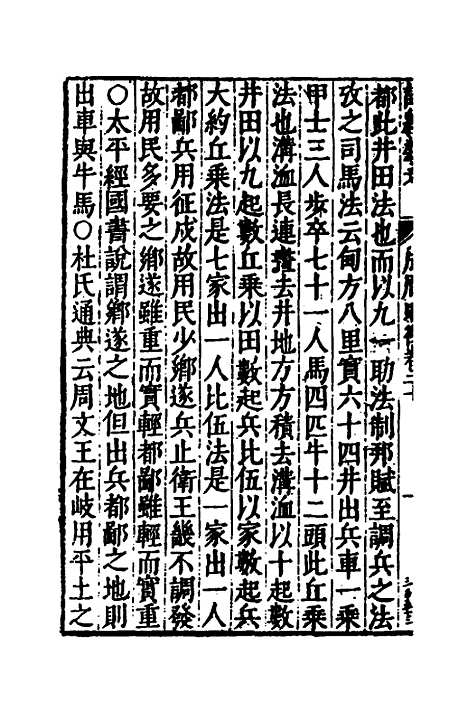 都此井田法也而以九一助法制邦賦至調兵之法
攷之司馬法云甸方八里實六十四井出兵車一乘
甲士三人步卒七十二人馬四匹牛十二頭此丘乘
法也溝洫長連攤去井地方方積去溝洫以十起數
井田以九起數丘乘以田數起兵比伍以家數起兵
大約丘乘法是七家出一人比伍法是一家出一人
都鄙兵用征戍故用民少鄉遂兵止衛王畿不調發
故用民多要之鄉遂雖重而實輕都鄙雖輕而實重
〇太平經國書說謂鄉遂之地但出兵都鄙之地則
出車與牛馬〇杜氏通典云周文王在岐用平土之